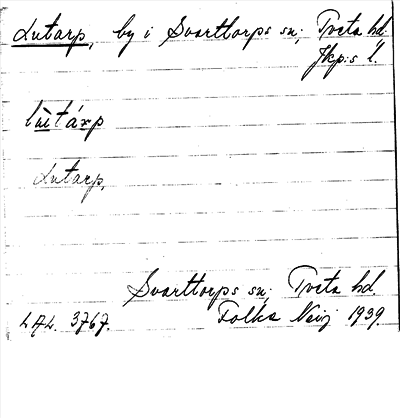 Lutarp, by i Svarttorps sn; Tveta hd.
Jkp:s l.
lùtáxp
Lutarp,
Svarttorps sn; Tveta hd.
LAL. 3767. Folke 1939.